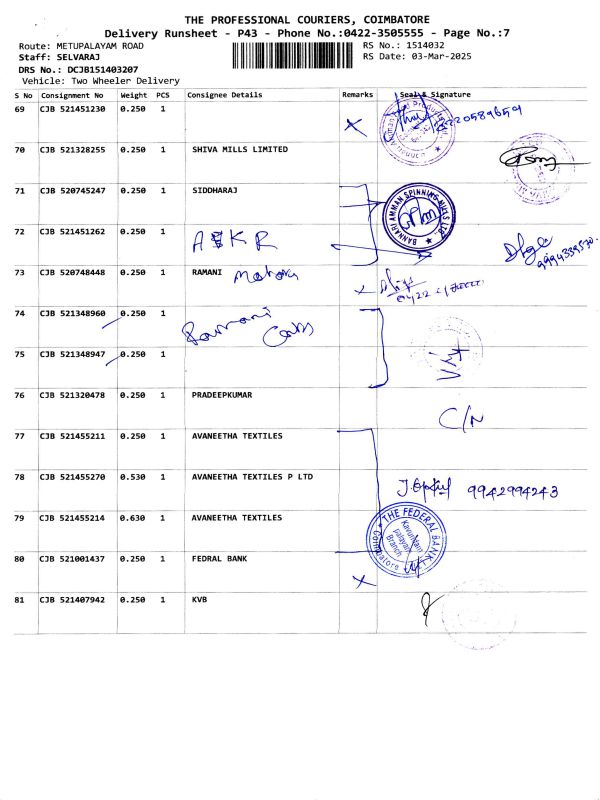 THE PROFESSIONAL COURIERS, COIMBATORE
Delivery Runsheet - P43 - Phone No.:0422-3505555 - Page No.:7
Route: METUPALAYAM ROAD
RS No.: 1514032
Staff: SELVARAJ
RS Date: 03-Mar-2025
DRS No.: DCJB151403207
Vehicle: Two Wheeler Delivery
S No Consignment No Weight PCS Consignee Details Remarks Seal & Signature
69 CJB 521451230 0.250 1
70 CJB 521328255 0.250 1 SHIVA MILLS LIMITED
71 CJB 520745247 0.250 1 SIDDHARAJ
BANNARI AMMAN SPINNING MILLS LTD.
72 CJB 521451262 0.250 1
73 CJB 520748448 0.250 1 RAMANI
74 CJB 521348960 0.250 1
Ramani Cars
75 CJB 521348947 0.250 1
76 CJB 521320478 0.250 1 PRADEEPKUMAR
C/N
77 CJB 521455211 0.250 1 AVANEETHA TEXTILES
78 CJB 521455270 0.530 1 AVANEETHA TEXTILES P LTD
9942994243
79 CJB 521455214 0.630 1 AVANEETHA TEXTILES
THE FEDERAL BANK
Branch
Coimbatore
80 CJB 521001437 0.250 1 FEDRAL BANK
81 CJB 521407942 0.250 1 KVB